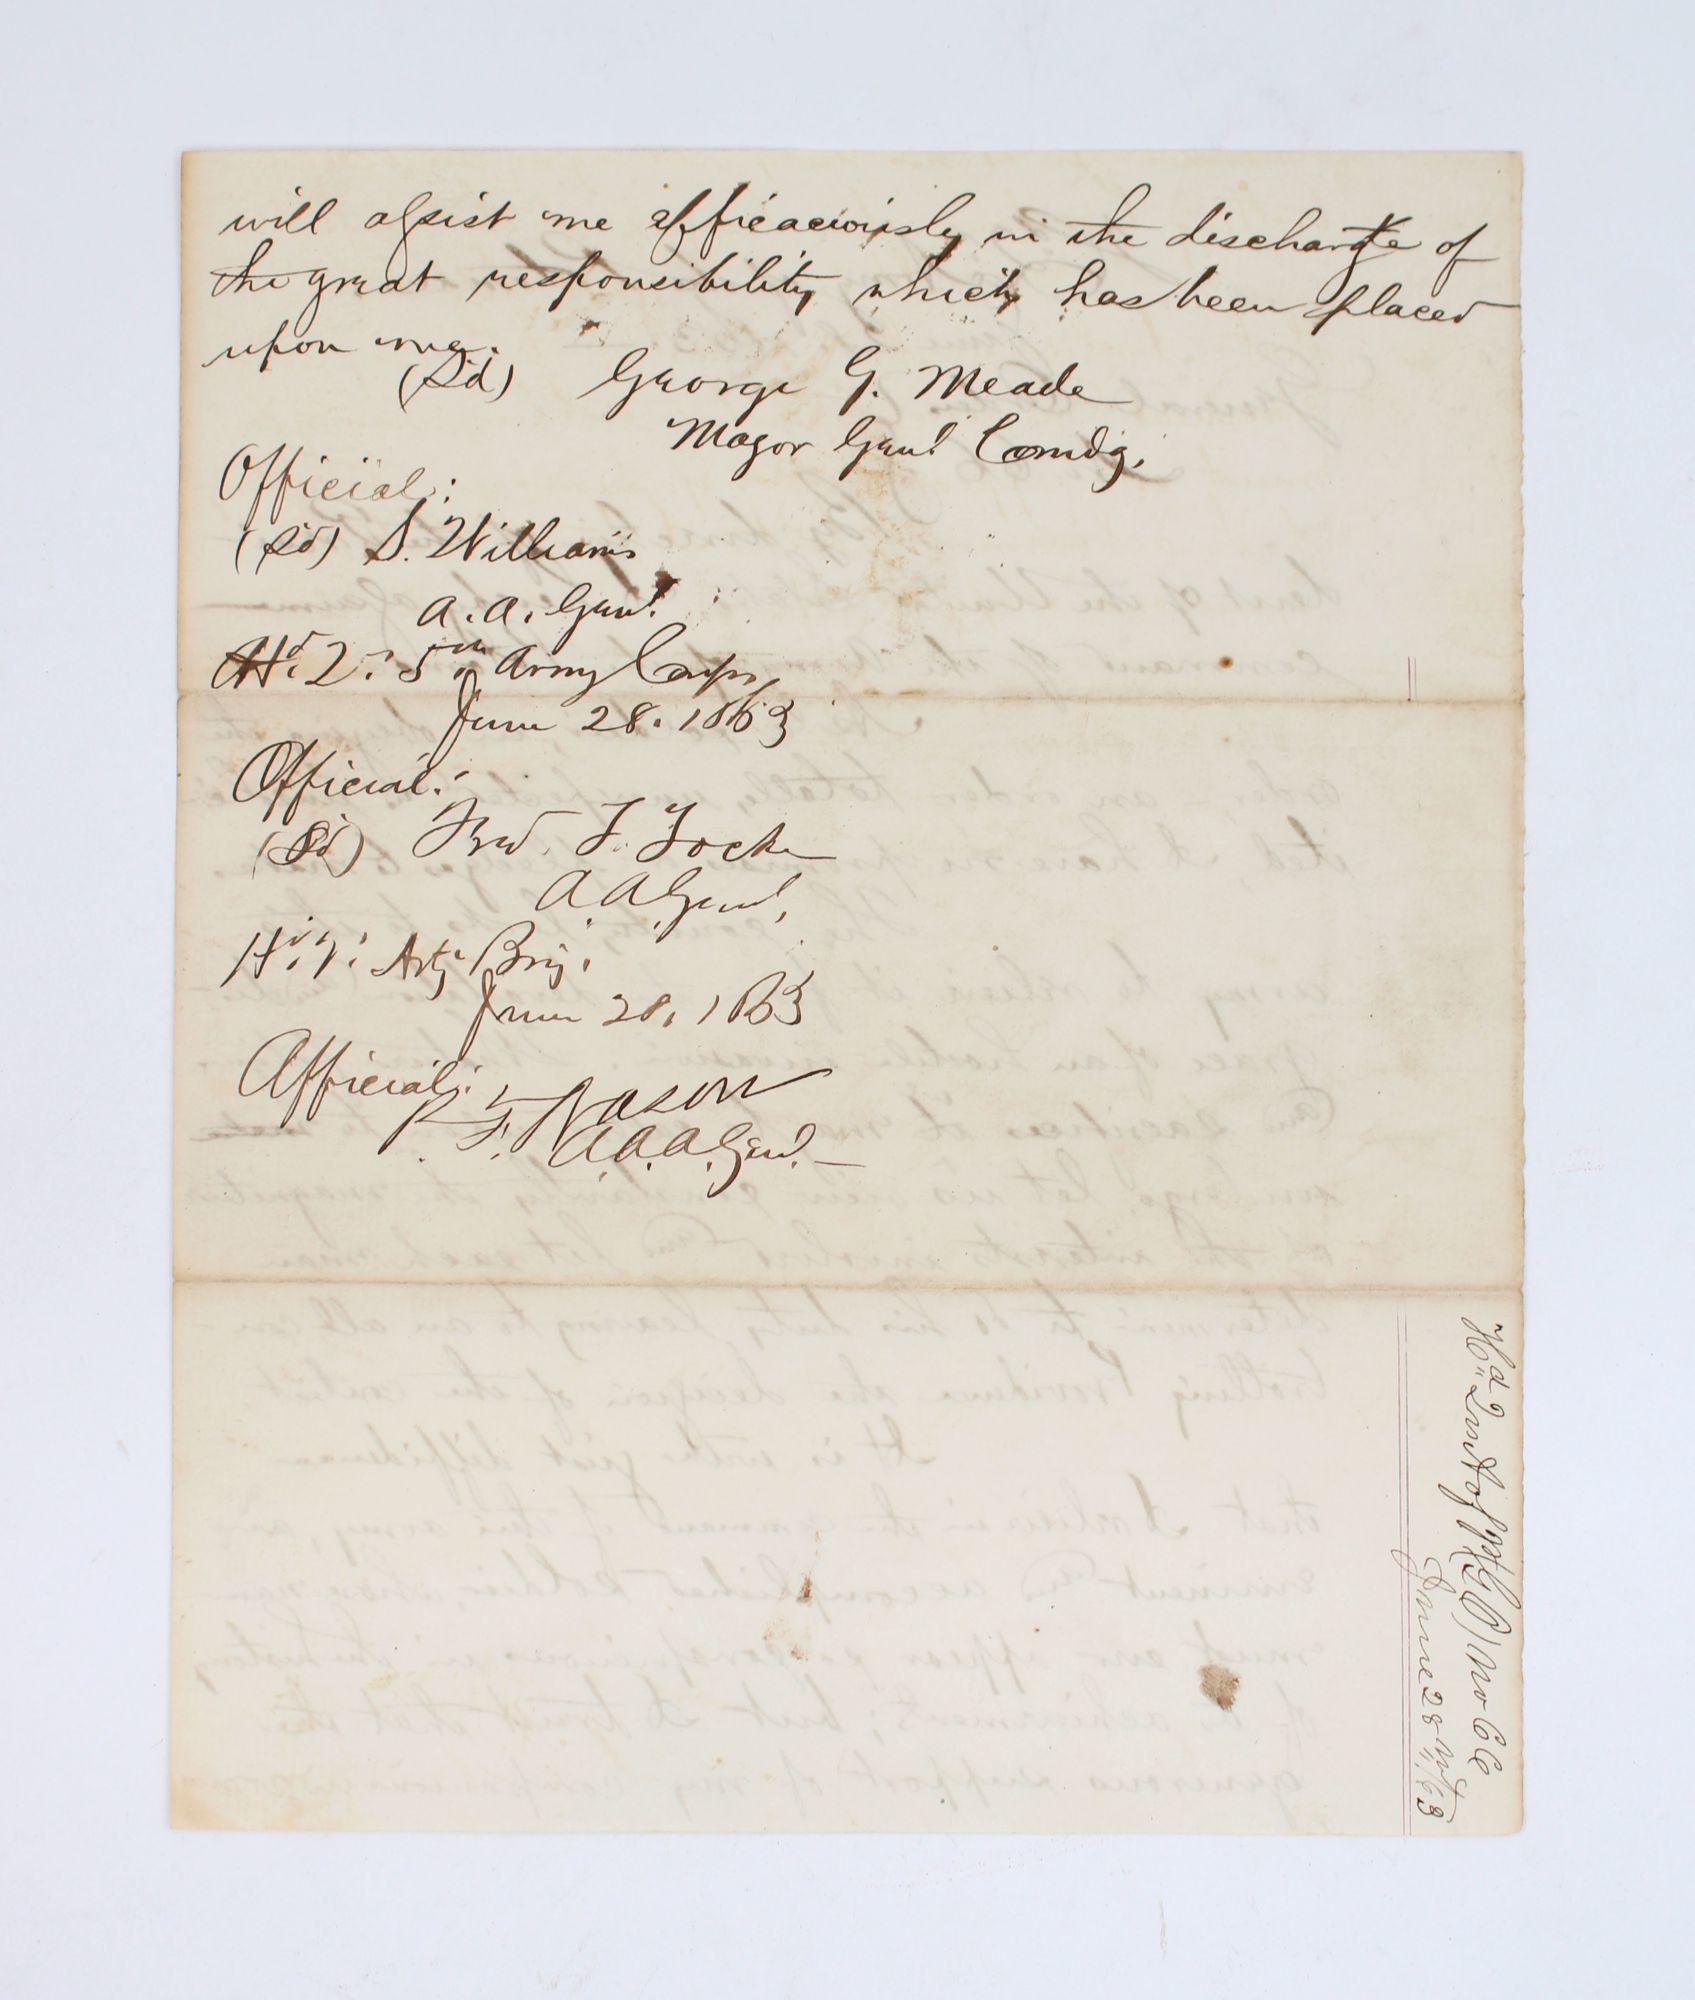 will assist me efficaciously in the discharge of
the great responsibility which has been placed
upon me.
(Sd) George G. Meade
Major Genl Comdg.
Official:
(Sd) S. Williams
A. A. Genl.
Hd. Q. 5th Army Corps
June 28. 1863
Official:
(Sd) Fred. T. Locke
A. A. Genl.
Hd. Q. Arty Brig.
June 28, 1863
Official:
P. F. Nason
A. A. A. Genl.
Hd Qrs A of P
(G.O) No 66
June 28th /63